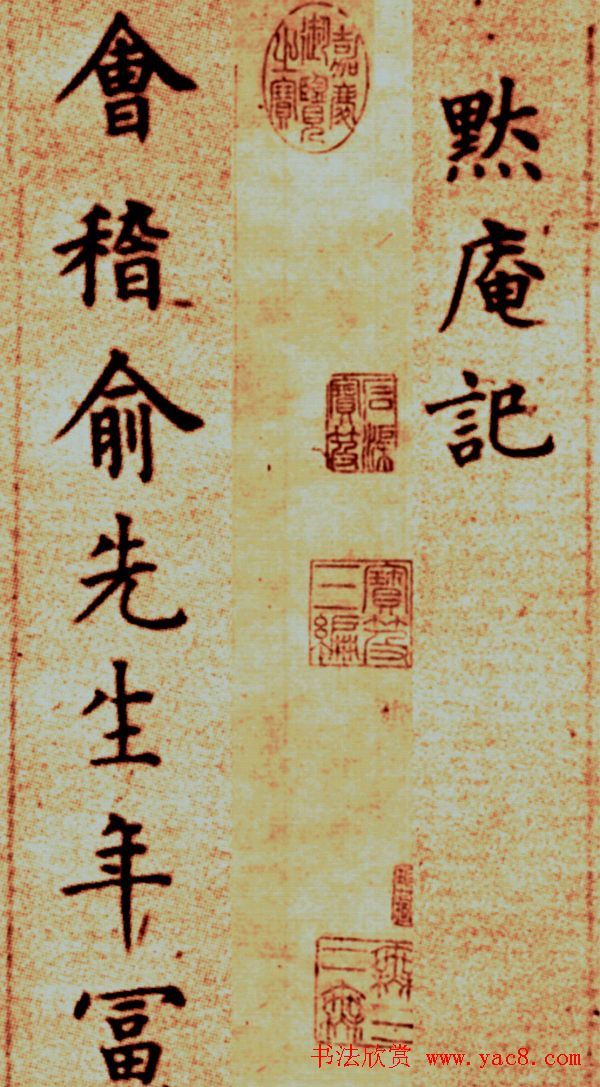 默庵記
嘉慶御覽之寶
石渠寶笈
寶笈三編
會稽俞先生年冨
书法欣赏 www.yac8.com